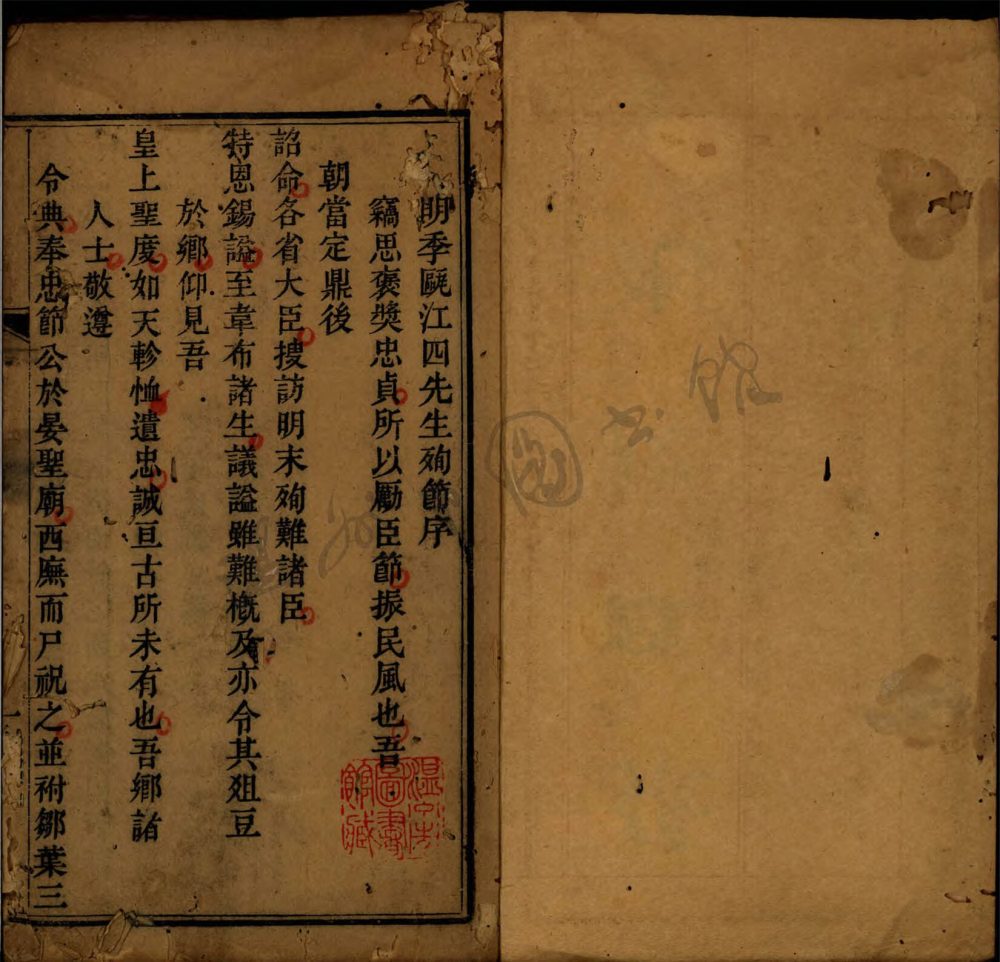 明季甌江四先生殉節序
竊思褒獎忠貞所以勵臣節振民風也吾
朝當定鼎後
詔命各省大臣搜訪明末殉難諸臣
特恩錫諡至韋布諸生議諡雖難概及亦令其俎豆
於鄉仰見吾
皇上聖度如天軫恤遺忠誠亘古所未有也吾鄉諸
人士敬遵
令典奉忠節公於晏聖廟西廡而尸祝之並祔鄒葉三
溫州
圖書
館藏